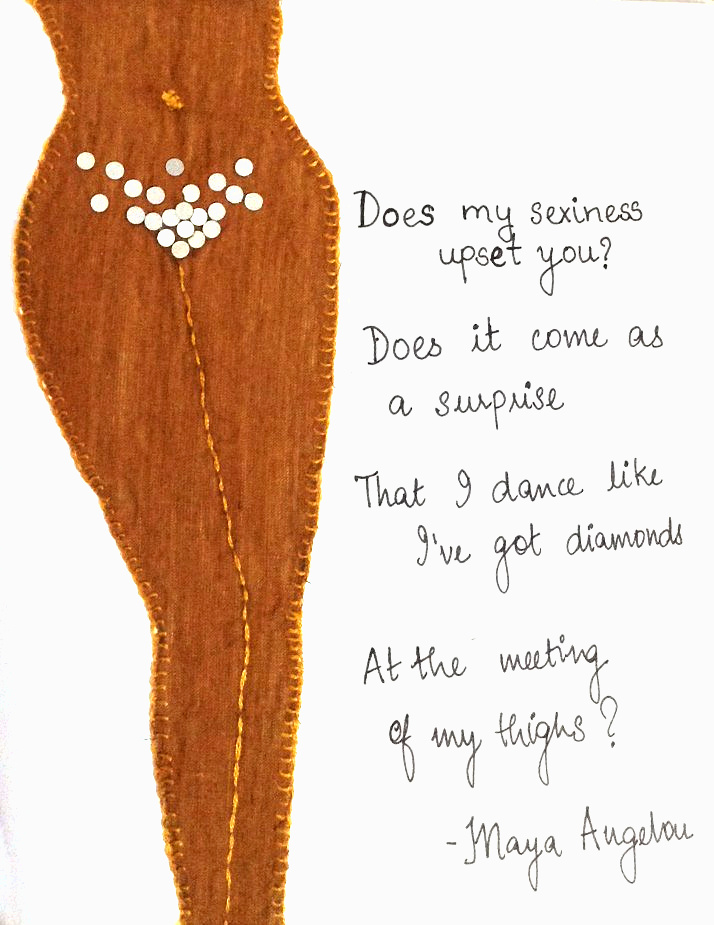 Does my sexiness
upset you?
Does it come as
a surprise
That I dance like
I've got diamonds
At the meeting
of my thighs?
-Maya Angelou